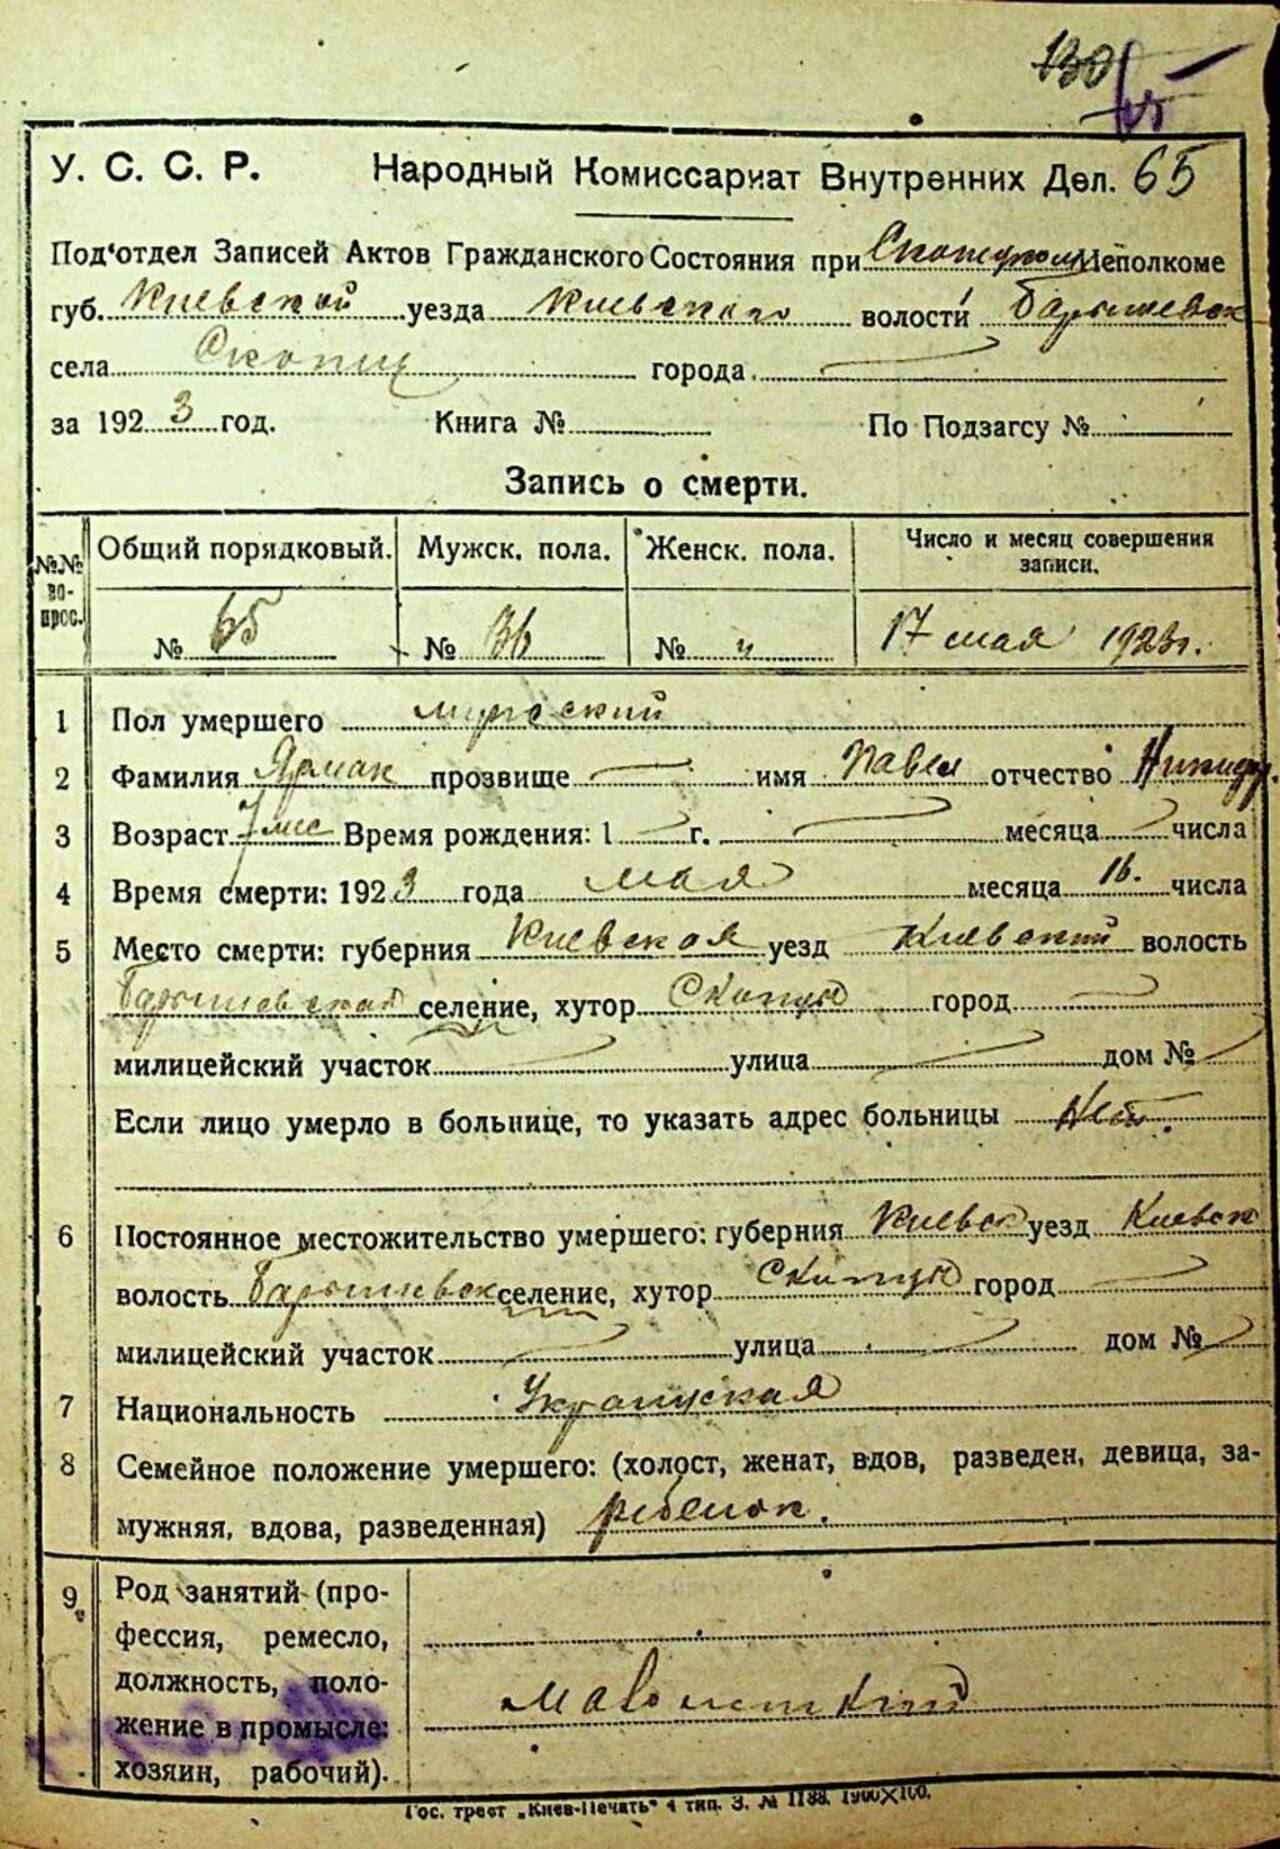 130
65
У. С. С. Р. Народный Комиссариат Внутренних Дел. 65
Под'отдел Записей Актов Гражданского Состояния при Исполкоме
губ. Киевской уезда Киевского волости Барышевск
села Скопці города
за 1923 год. Книга № По Подзагсу №
Запись о смерти.
№№ вопрос. Общий порядковый. Мужск. пола. Женск. пола. Число и месяц совершения записи.
№ 65 № 36 № " 17 мая 1923г.
1 Пол умершего мужский
2 Фамилия Ярмак прозвище имя Павел отчество
3 Возраст 7 мес Время рождения: 1 г. месяца числа
4 Время смерти: 1923 года мая месяца 16. числа
5 Место смерти: губерния Киевская уезд Киевский волость
Барышевская селение, хутор Скопцы город
милицейский участок улица дом №
Если лицо умерло в больнице, то указать адрес больницы Нет.
6 Постоянное местожительство умершего: губерния Киевск уезд Киевск
волость Барышевск селение, хутор Скопцы город
милицейский участок улица дом №
7 Национальность
8 Семейное положение умершего: (холост, женат, вдов, разведен, девица, за-
мужняя, вдова, разведенная) ребенок.
9 Род занятий (про-
фессия, ремесло,
должность, поло-
жение в промысле:
хозяин, рабочий).
Гос. трест „Киев-Печать" 4 тип. З. № 1188. 1900×100.